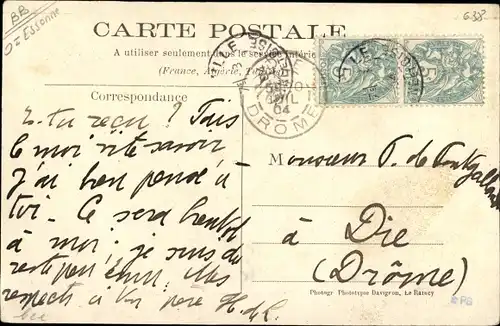 BB
O= Essonne
638
CARTE POSTALE
A utiliser seulement dans le service intérieur
(France, Algérie, Tunisie)
Correspondance
DRÔME
04
5
5
E-tu reçu ? Fais
le moi vite savoir
J'ai bien pensé à
toi. Ce sera bientôt
à moi; je suis du
reste peu ému. Mes
respects à ton père H. de
Monsieur P. de
à Die
(Drôme)
Photogr Phototypie Davignon, Le Raincy